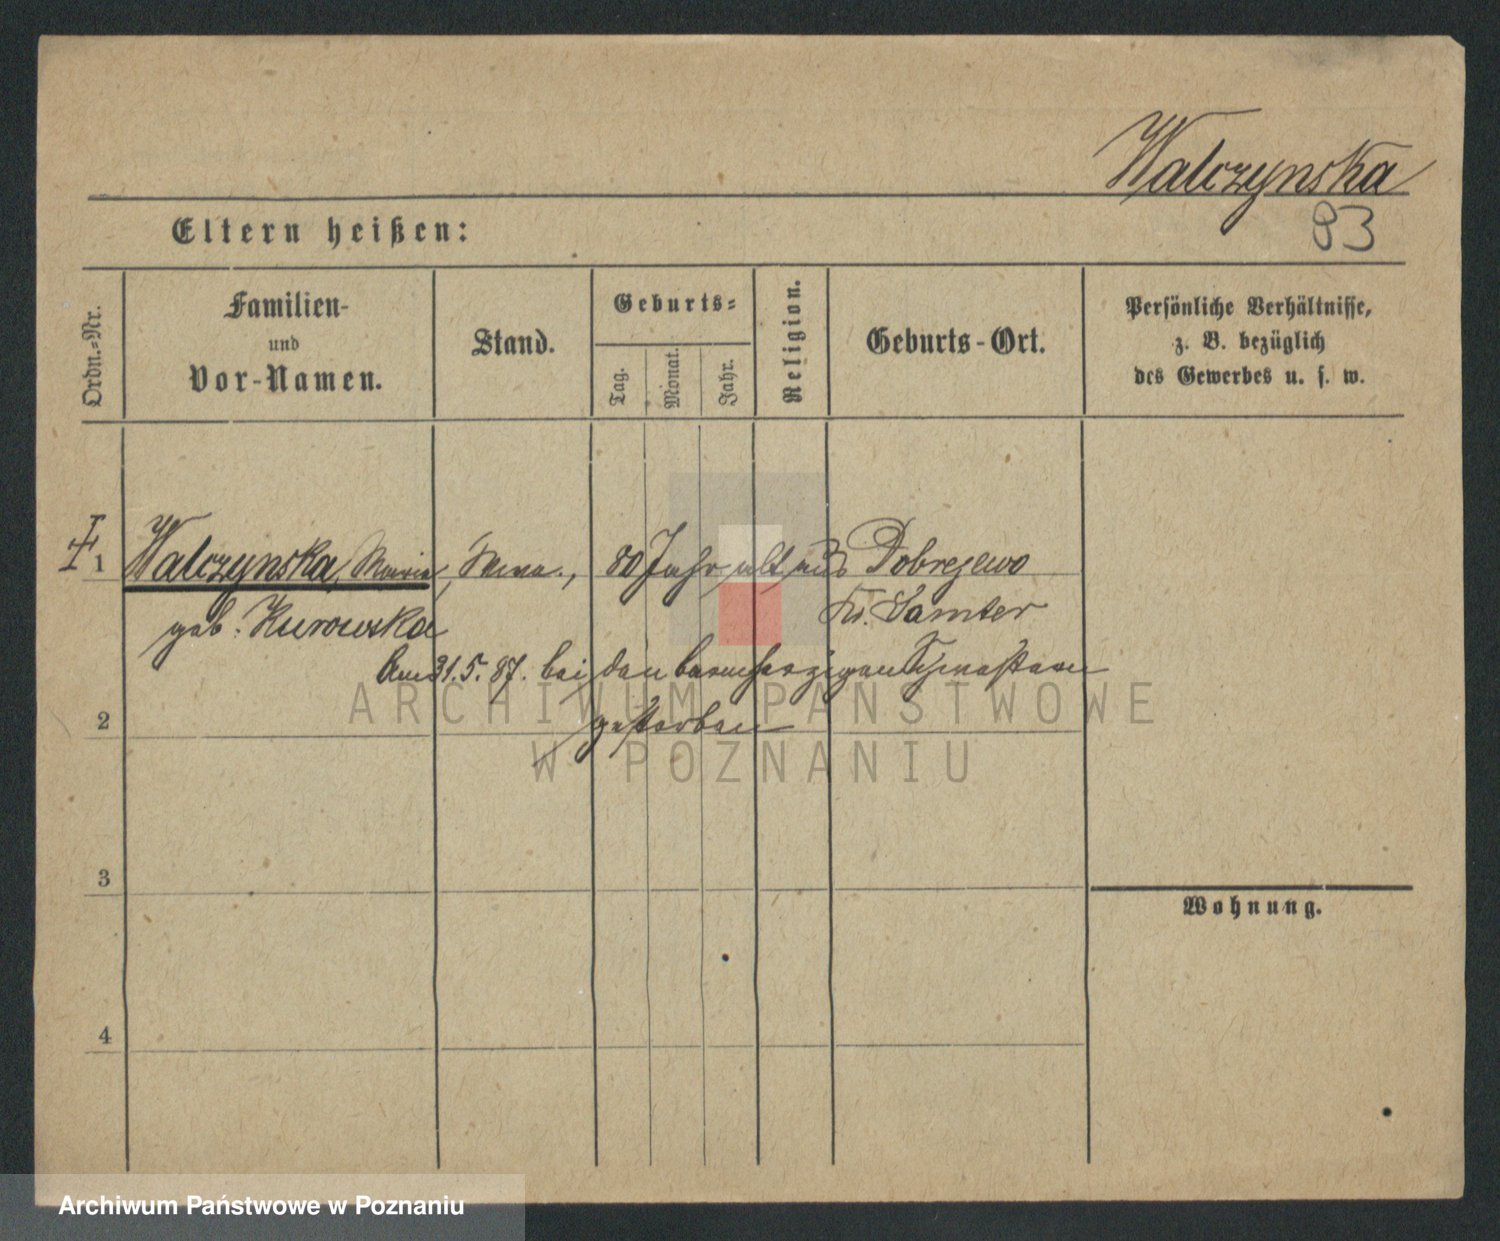 Walczynska
83
Eltern heißen:
Ordn.-Nr.
Familien-
und
Vor-Namen.
Stand.
Geburts=
Tag.
Monat.
Jahr.
Religion.
Geburts-Ort.
Persönliche Verhältnisse,
z. B. bezüglich
des Gewerbes u. s. w.
1 Walczynska, Maria, Wwe., 80 Jahr alt aus Dobrojewo
geb. Kurowska Kr. Samter
Am 31.5.87. bei den barmherzigen Schwestern
gestorben
2
3
4
Wohnung.
ARCHIWUM PAŃSTWOWE
W POZNANIU
Archiwum Państwowe w Poznaniu